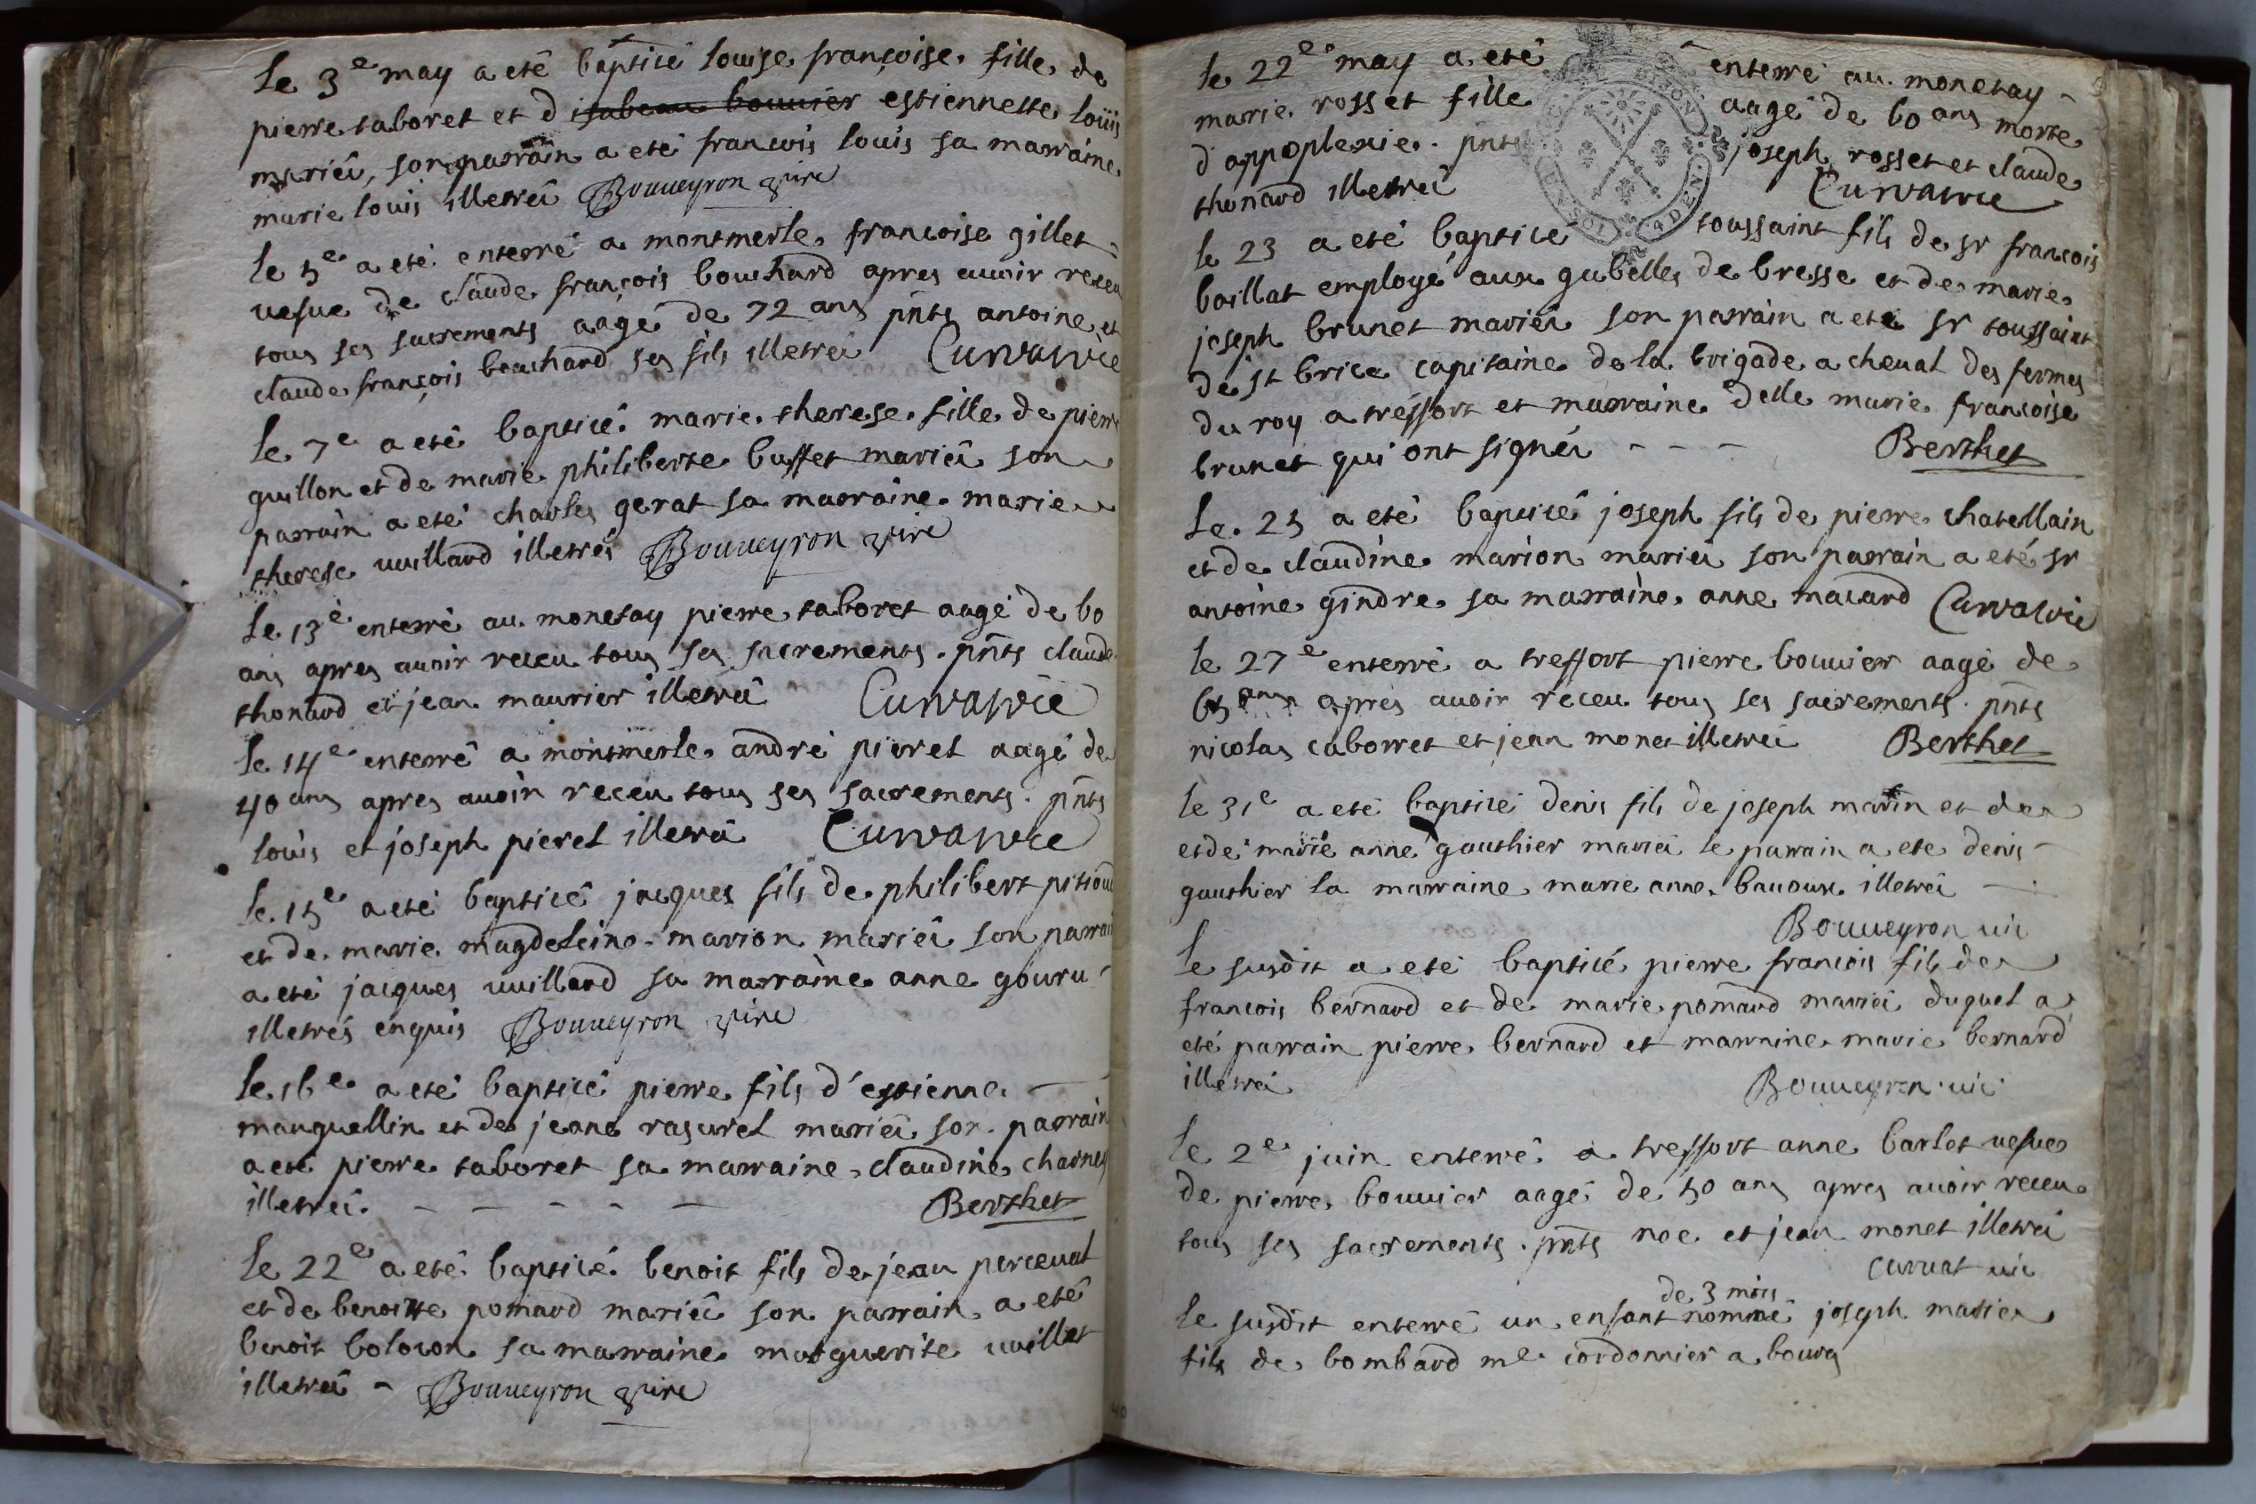 le 3e may a eté baptisé louise françoise fille de
pierre taboret et d isabeau bouvier estiennette loüis
mariéz, son parrain a eté francois louis sa marraine
marie louis illetréz Bouveyron vire
le 5e a eté enterré a montmerle francoise gillet
vefue de claude françois bouchard apres auoir receu
tous ses sacrements aagé de 72 ans pñts antoine et
claude françois bouchard ses fils illetréz Curvat vic
le 7e a eté baptisé marie therese fille de pierre
guillon et de marie philiberte buffet mariéz son
parrain a eté charles gerat sa marraine marie
therese vuillard illetrés Bouveyron vire
le 13e enterré au monetay pierre taboret aagé de 60
ans apres auoir receu tous ses sacrements. pñts claude
thonard et jean maurier illetréz Curvat vic
le 14e enterré a montmerle andré pieret aagé de
40 ans apres auoir receu tous ses sacrements. pñts
louis et joseph pieret illetréz Curvat vic
le 15e a eté baptisé jacques fils de philibert pitiou
et de marie magdeleine marion mariéz son parrain
a eté jacques vuillard sa marraine anne gouru
illetrés enquis Bouveyron vire
le 16e a eté baptisé pierre fils d'estienne
manguellin et de jeane rasurel mariéz son parrain
a eté pierre taboret sa marraine claudine charnes
illetréz. Berthet
le 22e a eté baptisé benoit fils de jean perceual
et de benoitte pomard mariéz son parrain a eté
benoit bolocon sa marraine marguerite vuillet
illetréz Bouveyron vire
le 22e may a eté enterré au monetay
marie rosset fille aagé de 60 ans morte
d'appoplexie. pñts joseph rosset et claude
thonard illetréz Curvat vic
le 23 a eté baptisé toussaint fils de sr francois
boillat employé aux gabelles de bresse et de marie
joseph brunet mariéz son parrain a eté sr toussaint
de st brice capitaine de la brigade a cheual des fermes
du roy a tréffort et marraine delle marie francoise
brunet qui ont signéz Berthet
le. 25 a eté baptisé joseph fils de pierre chatellain
et de claudine marion mariéz son parrain a eté sr
antoine gindre sa marraine anne macard Curvat vic
le 27e enterré a treffort pierre bouuier aagé de
65 ans aprés auoir receu tous ses sacrements. pñts
nicolas caborret et jean monet illetréz Berthet
le 31e a eté baptisé denis fils de joseph marin et de
et de marie anne gauthier mariéz le parrain a eté denis
gauthier la marraine marie anne bauoux illetréz
Bouveyron vic
le susdit a eté baptisé pierre francois fils de
francois bernard et de marie pomard mariéz duquel a
eté parrain pierre bernard et marraine marie bernard
illetréz Bouveyron vic
le 2e juin enterré a treffort anne barlet vefue
de pierre bouuier aagé de 50 ans apres auoir receu
tous ses sacrements. pñts noe et jean monet illetréz
Curvat vic
de 3 mois
le susdit enterré un enfant nommé joseph marie
fils de bombard me cordonnier a bourg